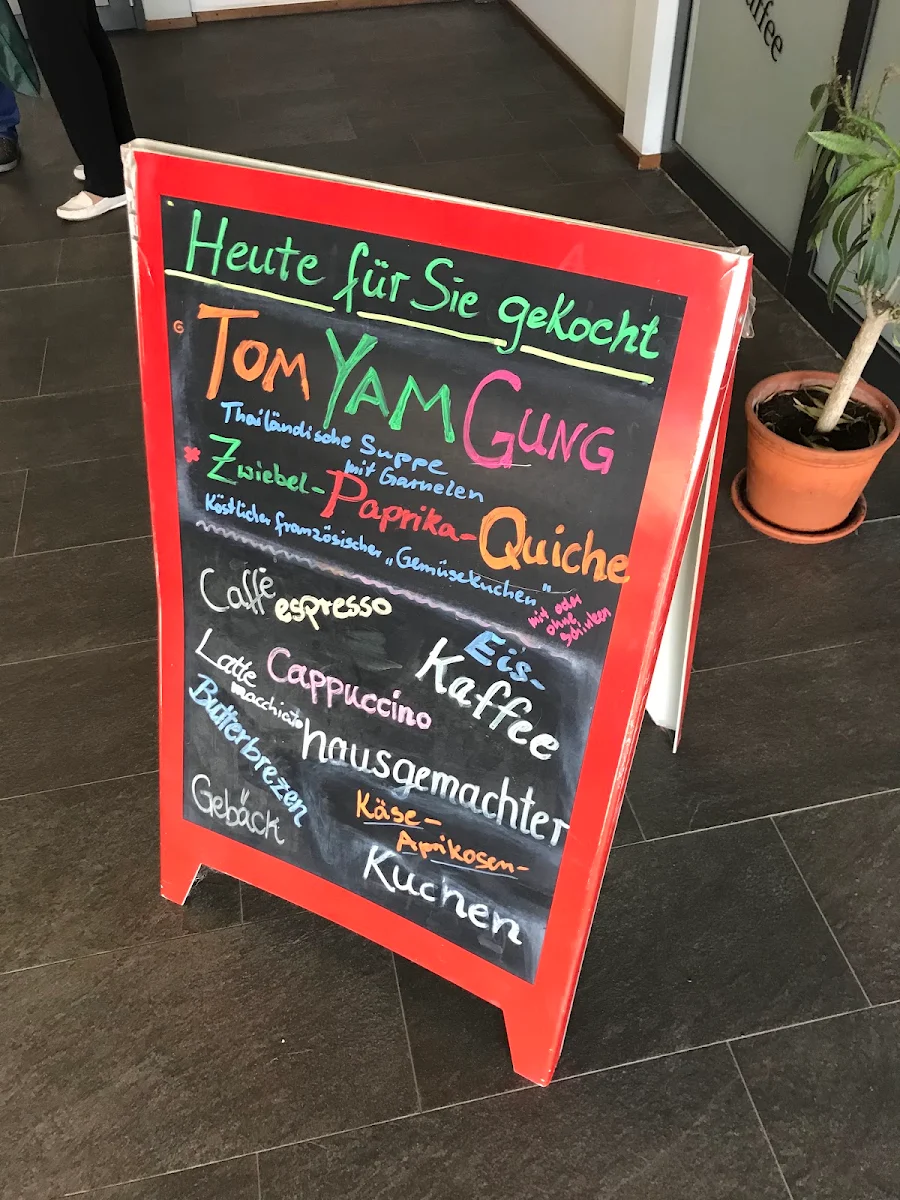 Heute für Sie gekocht
TOM YAM GUNG
Thailändische Suppe
mit Garnelen
Zwiebel-Paprika-Quiche
Köstlicher französischer „Gemüsekuchen"
mit oder
ohne
Schinken
Caffè
espresso
Eis-
Kaffee
Latte
macchiato
Cappuccino
Butterbrezen
hausgemachter
Gebäck
Käse-
Aprikosen-
Kuchen